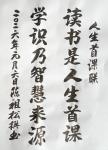 人生首课联
读书是人生首课
学识乃智慧来源
二〇二六年元月六日陈祖松拼书